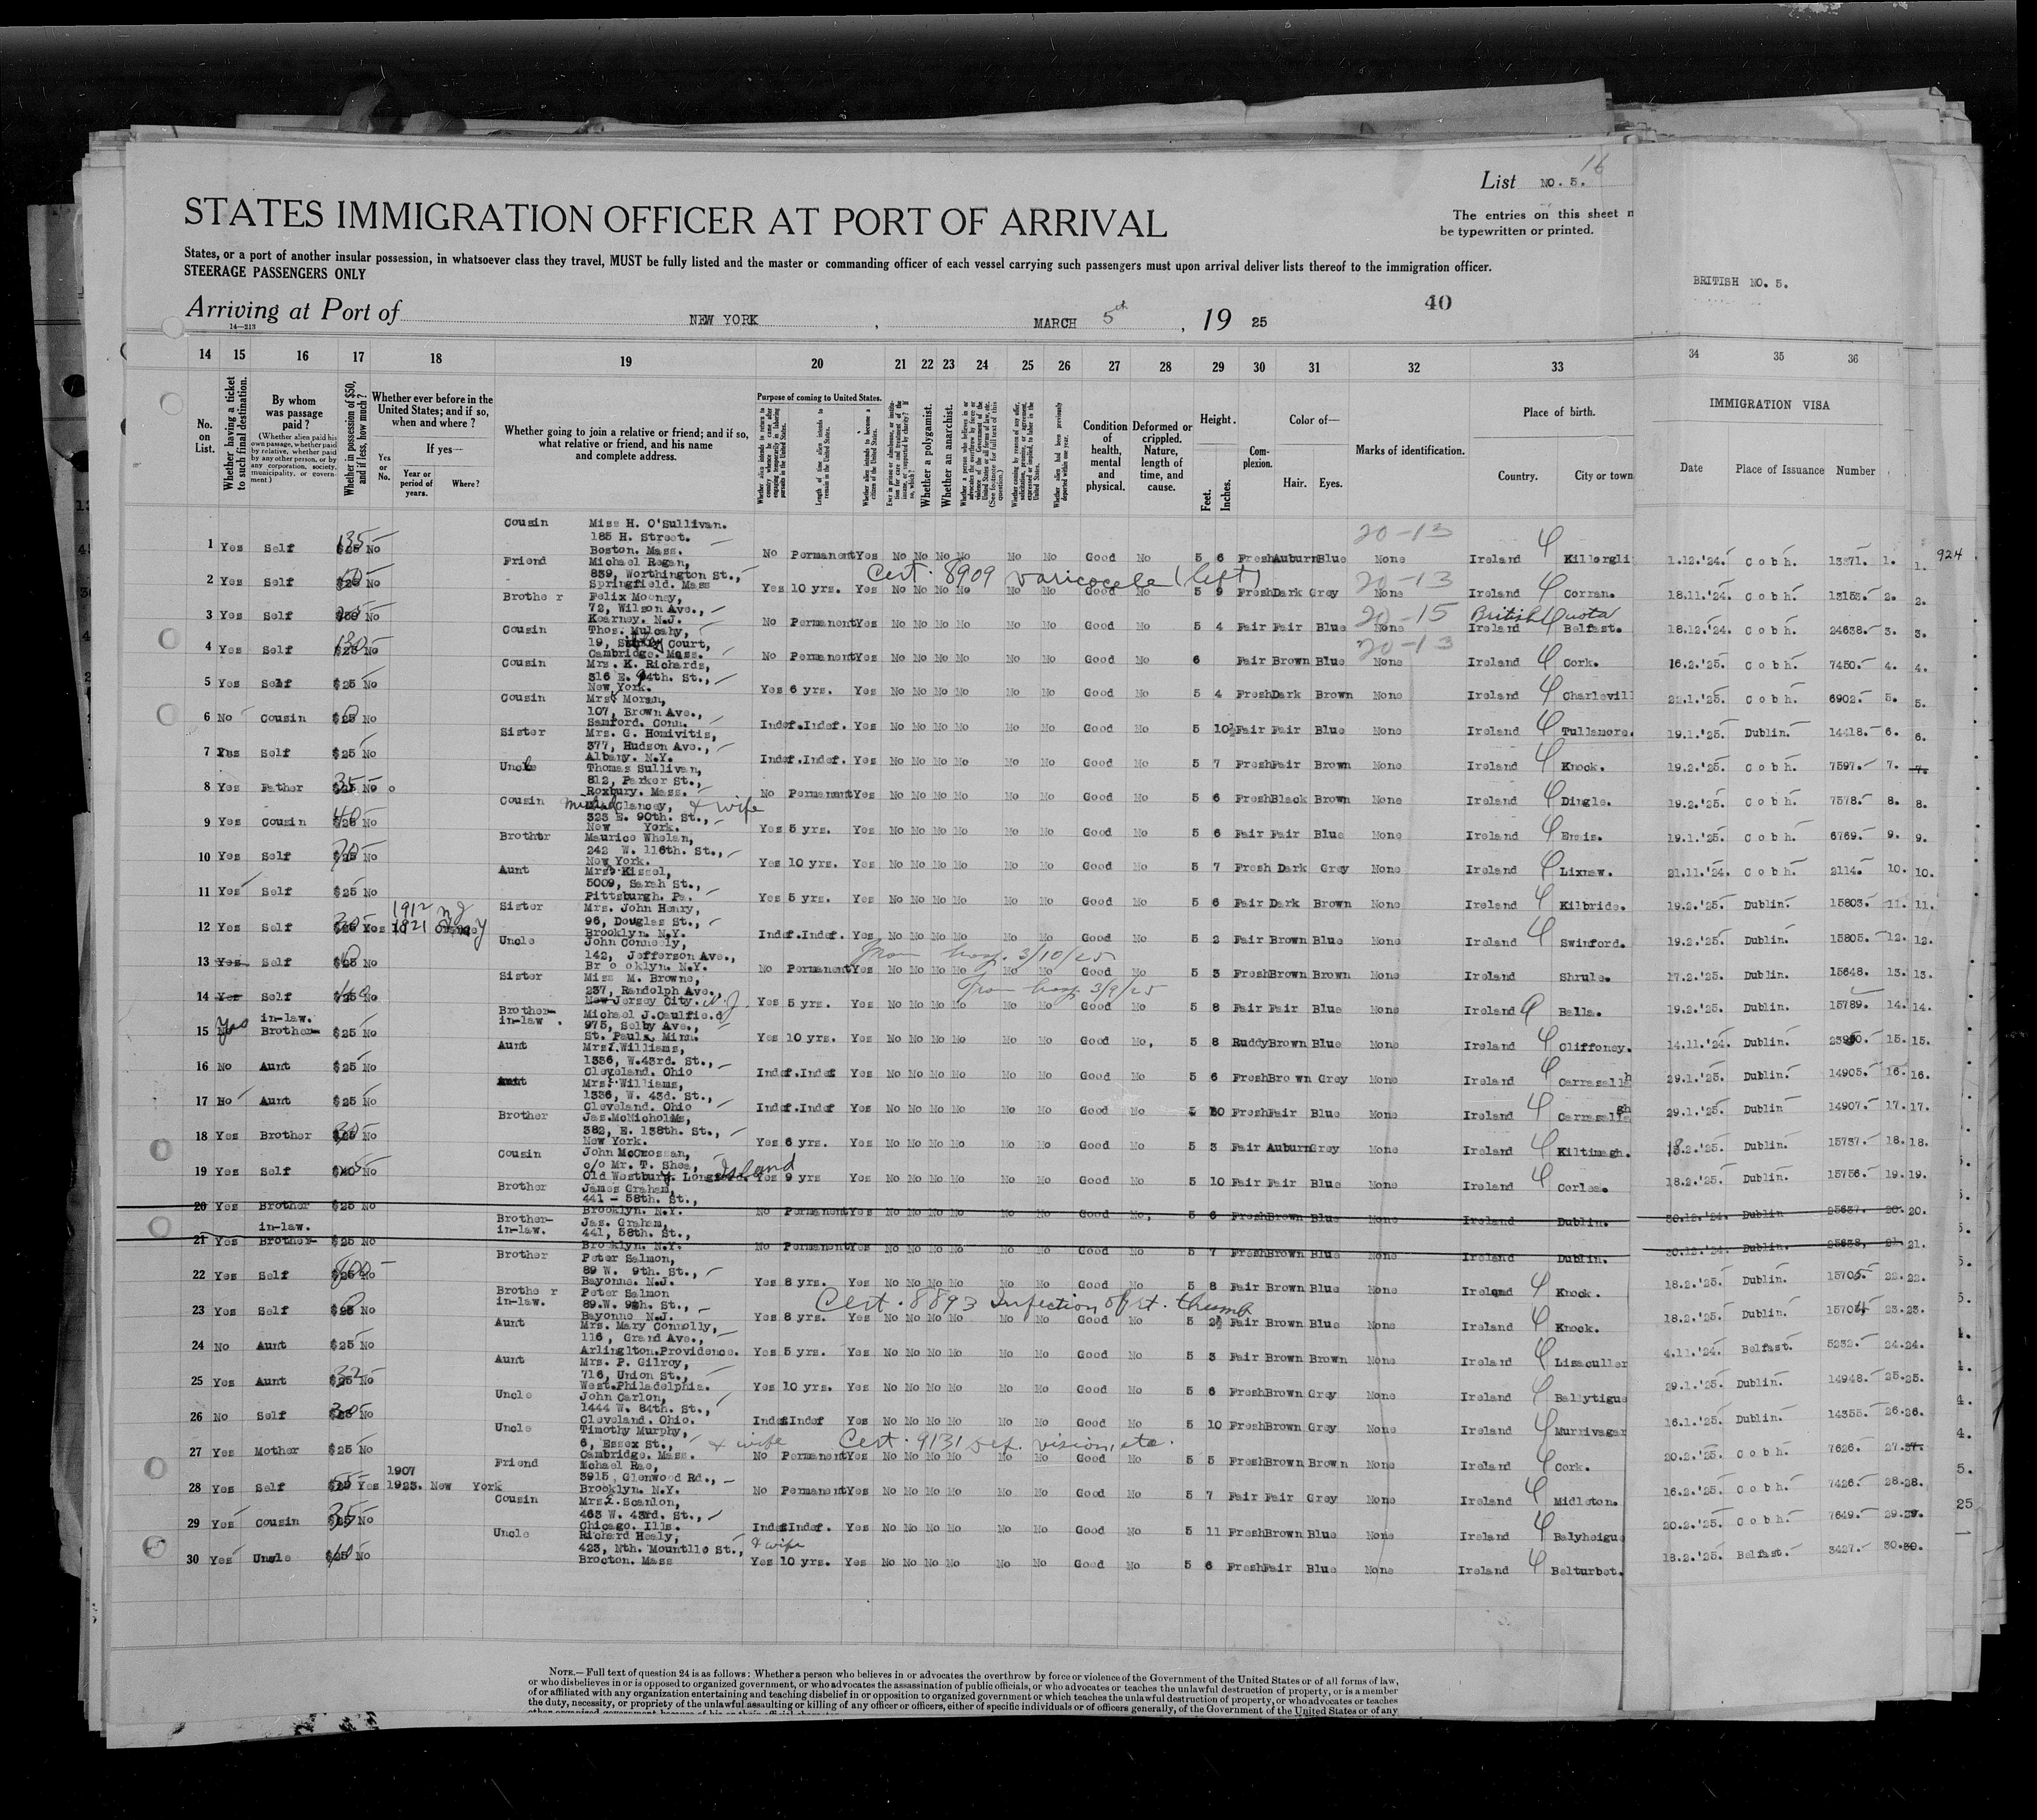 16
List NO. 5.
STATES IMMIGRATION OFFICER AT PORT OF ARRIVAL
The entries on this sheet
be typewritten or printed.
States, or a port of another insular possession, in whatsoever class they travel, MUST be fully listed and the master or commanding officer of each vessel carrying such passengers must upon arrival deliver lists thereof to the immigration officer.
STEERAGE PASSENGERS ONLY
BRITISH NO. 5.
Arriving at Port of NEW YORK, MARCH 5th, 19 25
40
14—213
14 15 16 17 18 19 20 21 22 23 24 25 26 27 28 29 30 31 32 33 34 35 36
No. on List.
Whether having a ticket to such final destination.
By whom was passage paid?
(Whether alien paid his own passage, whether paid by relative, whether paid by any other person, or by any corporation, society, municipality, or government.)
Whether in possession of $50, and if less, how much?
Whether ever before in the United States; and if so, when and where?
Yes or No.
If yes—
Year or period of years.
Where?
Whether going to join a relative or friend; and if so, what relative or friend, and his name and complete address.
Purpose of coming to United States.
Length of time alien intends to remain in the United States.
Whether alien intends to become a citizen of the United States.
Whether a polygamist.
Whether an anarchist.
Condition of health, mental and physical.
Deformed or crippled. Nature, length of time, and cause.
Height.
Feet. Inches.
Complexion.
Color of—
Hair. Eyes.
Marks of identification.
Place of birth.
Country. City or town
IMMIGRATION VISA
Date Place of Issuance Number
1 Yes Self $25 No Cousin Miss H. O'Sullivan. 185 H. Street. Boston. Mass. No Permanent Yes No No No No No No Good No 5 6 Fresh Auburn Blue None Ireland Killorgli 1.12.'24. Cobh. 1. 1. 924
20-13
2 Yes Self $25 No Friend Michael Regan, 839, Worthington St., Springfield. Mass Yes 10 yrs. Yes No No No No No No Good No 5 9 Fresh Dark Grey None Ireland Corran. 18.11.'24. Cobh. 2. 2.
Cert. 8909 varicocele (left) 20-13
3 Yes Self No Brother Felix Mooney, 72, Wilson Ave., Kearney. N.J. No Permanent Yes No No No No No No Good No 5 4 Fair Fair Blue None Ireland Belfast. 18.12.'24. Cobh. 24638. 3. 3.
20-15 British Quota
4 Yes Self $25 No Cousin Thos. Mulcahy, 19, Court, Cambridge. Mass. No Permanent Yes No No No No No No Good No 6 Fair Brown Blue None Ireland Cork. 16.2.'25. Cobh. 7450. 4. 4.
20-13
5 Yes Self $25 No Cousin Mrs. K. Richards, 316 E. 94th. St., New York. Yes 6 yrs. Yes No No No No No No Good No 5 4 Fresh Dark Brown None Ireland Charlevill 22.1.'25. Cobh. 6902. 5. 5.
6 No Cousin $25 No Cousin Mrs. Moran, 107, Brown Ave., Samford. Conn. Indef. Indef. Yes No No No No No No Good No 5 10½ Fair Fair Blue None Ireland Tullamore. 19.1.'25. Dublin. 14418. 6. 6.
7 Yes Self $25 No Sister Mrs. G. Homivitis, 377, Hudson Ave., Albany. N.Y. Indef. Indef. Yes No No No No No No Good No 5 7 Fresh Fair Brown None Ireland Knock. 19.2.'25. Cobh. 7597. 7. 7.
8 Yes Father 35 $25 No Uncle Thomas Sullivan, 812, Parker St., Roxbury. Mass. No Permanent Yes No No No No No No Good No 5 6 Fresh Black Brown None Ireland Dingle. 19.2.'25. Cobh. 7578. 8. 8.
9 Yes Cousin 40 $25 No Cousin Clancey, & wife 323 E. 90th. St., New York. Yes 5 yrs. Yes No No No No No No Good No 5 6 Fair Fair Blue None Ireland Ennis. 19.1.'25. Cobh. 6769. 9. 9.
10 Yes Self $25 No Brother Maurice Whelan, 242 W. 116th. St., New York. Yes 10 yrs. Yes No No No No No No Good No 5 7 Fresh Dark Grey None Ireland Lixnaw. 21.11.'24. Cobh. 2114. 10. 10.
11 Yes Self $25 No Aunt Mrs. Kissel, 5009, Sarah St., Pittsburgh. Pa. Yes 5 yrs. Yes No No No No No No Good No 5 6 Fair Dark Brown None Ireland Kilbride. 19.2.'25. Dublin. 15803. 11. 11.
12 Yes Self $25 Yes 1912 1921 N J Sister Mrs. John Henry, 96, Douglas St., Brooklyn. N.Y. Indef. Indef. Yes No No No No No No Good No 5 2 Fair Brown Blue None Ireland Swinford. 19.2.'25. Dublin. 15805. 12. 12.
13 Yes Self $25 No Uncle John Conneely, 142, Jefferson Ave., Brooklyn. N.Y. No Permanent Yes No No No No No No Good No 5 3 Fresh Brown Brown None Ireland Shrule. 17.2.'25. Dublin. 15648. 13. 13.
From hosp. 3/10/25
14 Yes Self $25 No Sister Miss M. Browne, 237, Randolph Ave., New Jersey City. N.J. Yes 5 yrs. Yes No No No No No No Good No 5 8 Fair Fair Blue None Ireland Balla. 19.2.'25. Dublin. 15789. 14. 14.
From hosp 3/9/25
15 Yes Brother-in-law. $25 No Brother-in-law. Michael J. Caulfield 975, Selby Ave., St. Paul, Minn. Yes 10 yrs. Yes No No No No No No Good No, 5 8 Ruddy Brown Blue None Ireland Cliffoney. 14.11.'24. Dublin. 15. 15.
16 No Aunt $25 No Aunt Mrs. Williams, 1336, W.43rd. St., Cleveland. Ohio Indef. Indef Yes No No No No No No Good No 5 6 Fresh Brown Grey None Ireland 29.1.'25. Dublin. 14905. 16. 16.
17 No Aunt $25 No Aunt Mrs. Williams, 1336, W. 43d. St., Cleveland. Ohio Indef. Indef Yes No No No No No No Good No Fresh Fair Blue None Ireland 29.1.'25. Dublin 14907. 17. 17.
18 Yes Brother $25 No Brother Jas. McNicholas, 382, E. 138th. St., New York. Yes 6 yrs. Yes No No No No No No Good No 5 3 Fair Auburn Grey None Ireland Kiltimagh. 18.2.'25. Dublin. 15737. 18. 18.
19 Yes Self No Cousin John McCrossan, c/o Mr. T. Shea, Old Westbury. Long Island Yes 9 yrs Yes No No No No No No Good No 5 10 Fair Fair Blue None Ireland 18.2.'25. Dublin. 15756. 19. 19.
20 Yes Brother $25 No Brother James Graham, 441 - 58th. St., Brooklyn. N.Y. No Permanent Yes No No No No No No Good No, 5 6 Fresh Brown Blue None Ireland Dublin. 30.12.'24. Dublin 25637. 20. 20.
21 Yes Brother-in-law. $25 No Brother-in-law. Jas. Graham, 441, 58th. St., Brooklyn. N.Y. No Permanent Yes No No No No No No Good No 5 7 Fresh Brown Blue None Ireland Dublin. 30.12.'24. Dublin. 25638, 21. 21.
22 Yes Self $25 No Brother Peter Salmon, 89 W. 9th. St., Bayonne. N.J. Yes 8 yrs. Yes No No No No No No Good No 5 8 Fair Brown Blue None Ireland Knock. 18.2.'25. Dublin. 15705. 22. 22.
23 Yes Self $25 No Brother in-law. Peter Salmon 89.W. 9th. St., Bayonne N.J. Yes 8 yrs. Yes No No No No No No Good No 5 2½ Fair Brown Blue None Ireland Knock. 18.2.'25. Dublin. 15704 23. 23.
Cert. 8893 Infection of rt. thumb
24 No Aunt $25 No Aunt Mrs. Mary Connolly, 116, Grand Ave., Arlington. Providence. Yes 5 yrs. Yes No No No No No No Good No 5 3 Fair Brown Brown None Ireland Lisaculler 4.11.'24. Belfast. 5232. 24. 24.
25 Yes Aunt 32 $25 No Aunt Mrs. P. Gilroy, 716, Union St., West. Philadelphia. Yes 10 yrs. Yes No No No No No No Good No 5 6 Fresh Brown Grey None Ireland Ballytigue 29.1.'25. Dublin. 14948. 25. 25.
26 No Self $25 No Uncle John Carlon, 1444 W. 84th. St., Cleveland. Ohio. Indef Indef Yes No No No No No No Good No 5 10 Fresh Brown Grey None Ireland Murrivagar 16.1.'25. Dublin. 14355. 26. 26.
27 Yes Mother $25 No Uncle Timothy Murphy, 6, Essex St., & wife Cambridge. Mass. No Permanent Yes No No No No No No Good No 5 5 Fresh Brown Brown None Ireland Cork. 20.2.'25. Cobh. 7626. 27. 27.
Cert. 9131 Def. vision, etc.
28 Yes Self $25 Yes 1907 1923. New York Friend Michael Rae, 3915, Glenwood Rd., Brooklyn. N.Y. No Permanent Yes No No No No No No Good No 5 7 Fair Fair Grey None Ireland Midleton. 16.2.'25. Cobh. 7426. 28. 28.
29 Yes Cousin $25 No Cousin Mrs. Scanlon, 463 W. 43rd. St., Chicago. Ills. Indef Indef. Yes No No No No No No Good No 5 11 Fresh Brown Blue None Ireland Balyheigue 20.2.'25. Cobh. 7649. 29. 29.
30 Yes Uncle $25 No Uncle Richard Healy, 423, Nth. Mountllo St., & wife Brocton. Mass Yes 10 yrs. Yes No No No No No No Good No 5 6 Fresh Fair Blue None Ireland Belturbet. 18.2.'25. Belfast. 3427. 30. 30.
NOTE.—Full text of question 24 is as follows: Whether a person who believes in or advocates the overthrow by force or violence of the Government of the United States or of all forms of law,
or who disbelieves in or is opposed to organized government, or who advocates the assassination of public officials, or who advocates or teaches the unlawful destruction of property, or is a member
of or affiliated with any organization entertaining and teaching disbelief in or opposition to organized government or which teaches the unlawful destruction of property, or who advocates or teaches
the duty, necessity, or propriety of the unlawful assaulting or killing of any officer or officers, either of specific individuals or of officers generally, of the Government of the United States or of any